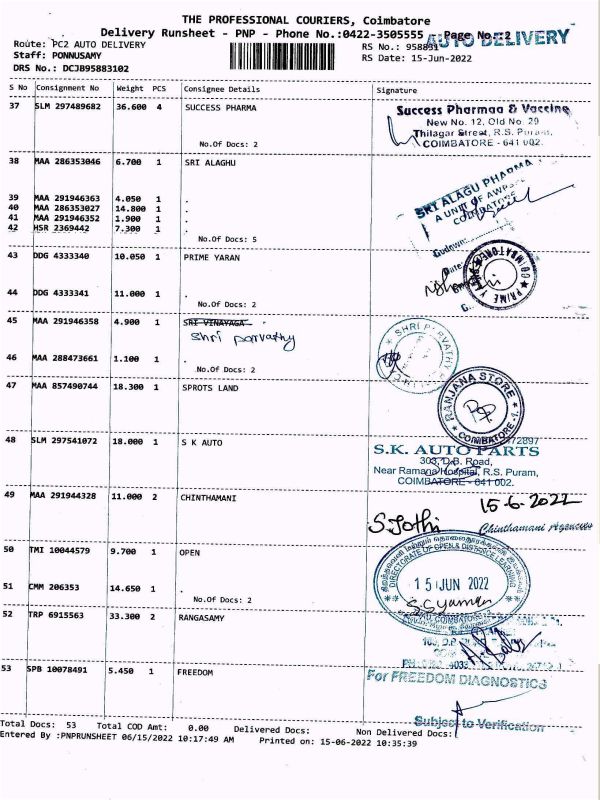 THE PROFESSIONAL COURIERS, Coimbatore
Delivery Runsheet - PNP - Phone No.:0422-3505555 Page No.: 2
AUTO DELIVERY
Route: PC2 AUTO DELIVERY
RS No.: 958831
Staff: PONNUSAMY
RS Date: 15-Jun-2022
DRS No.: DCJB95883102
S No Consignment No Weight PCS Consignee Details Signature
37 SLM 297489682 36.600 4 SUCCESS PHARMA
No.Of Docs: 2
Success Pharmaa & Vaccine
New No. 12, Old No. 29
Thilagar Street, R.S. Puram,
COIMBATORE - 641 002.
38 MAA 286353046 6.700 1 SRI ALAGHU
39 MAA 291946363 4.050 1 .
40 MAA 286353027 14.800 1 .
41 MAA 291946352 1.900 1 .
42 HSR 2369442 7.300 1 .
No.Of Docs: 5
SRI ALAGU PHARMA
A UNIT OF
COIMBATORE
Godown:
Date:
43 DDG 4333340 10.050 1 PRIME YARAN
44 DDG 4333341 11.000 1 .
No.Of Docs: 2
PRIME
COIMBATORE
45 MAA 291946358 4.900 1 SRI VINAYAGA
Shri parvathy
46 MAA 288473661 1.100 1 .
No.Of Docs: 2
SHRI PARVATHY
47 MAA 857490744 18.300 1 SPROTS LAND
RANJANA STORE
COIMBATORE-1.
48 SLM 297541072 18.000 1 S K AUTO
72897
S.K. AUTO PARTS
303, D.B. Road,
Near Ramana Hospital, R.S. Puram,
COIMBATORE - 641 002.
49 MAA 291944328 11.000 2 CHINTHAMANI
15-6-2022
S. Jothi
Chinthamani Agencies
50 TMI 10044579 9.700 1 OPEN
51 CMM 206353 14.650 1 .
No.Of Docs: 2
DIRECTORATE OF OPEN & DISTANCE LEARNING
15 JUN 2022
52 TRP 6915563 33.300 2 RANGASAMY
53 SPB 10078491 5.450 1 FREEDOM
For FREEDOM DIAGNOSTICS
Subject to Verification
Total Docs: 53 Total COD Amt: 0.00 Delivered Docs: Non Delivered Docs:
Entered By :PNPRUNSHEET 06/15/2022 10:17:49 AM Printed on: 15-06-2022 10:35:39